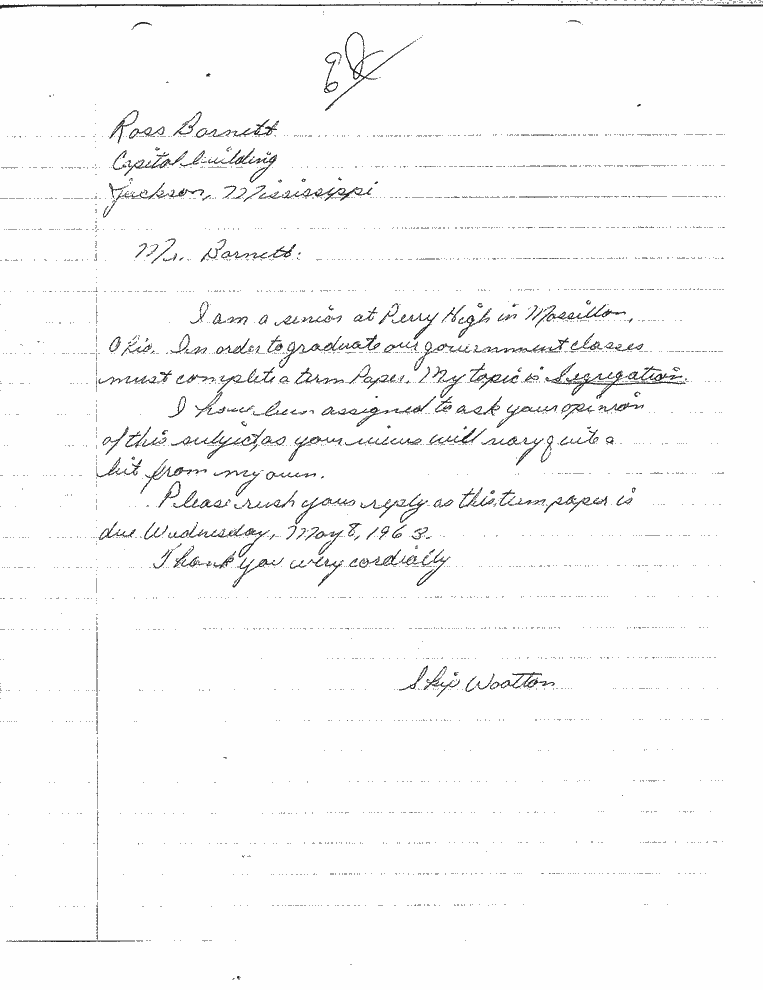 Ross Barnett
Capital building
Jackson, Mississippi
Mr. Barnett:
I am a senior at Perry High in Massillon,
Ohio. In order to graduate our government classes
must complete a term Paper. My topic is Segregation.
I have been assigned to ask your opinion
of this subject, as your views will vary quite a
bit from my own.
Please rush your reply as this term paper is
due Wednesday, May 8, 1963.
Thank you very cordially
Skip Wootton